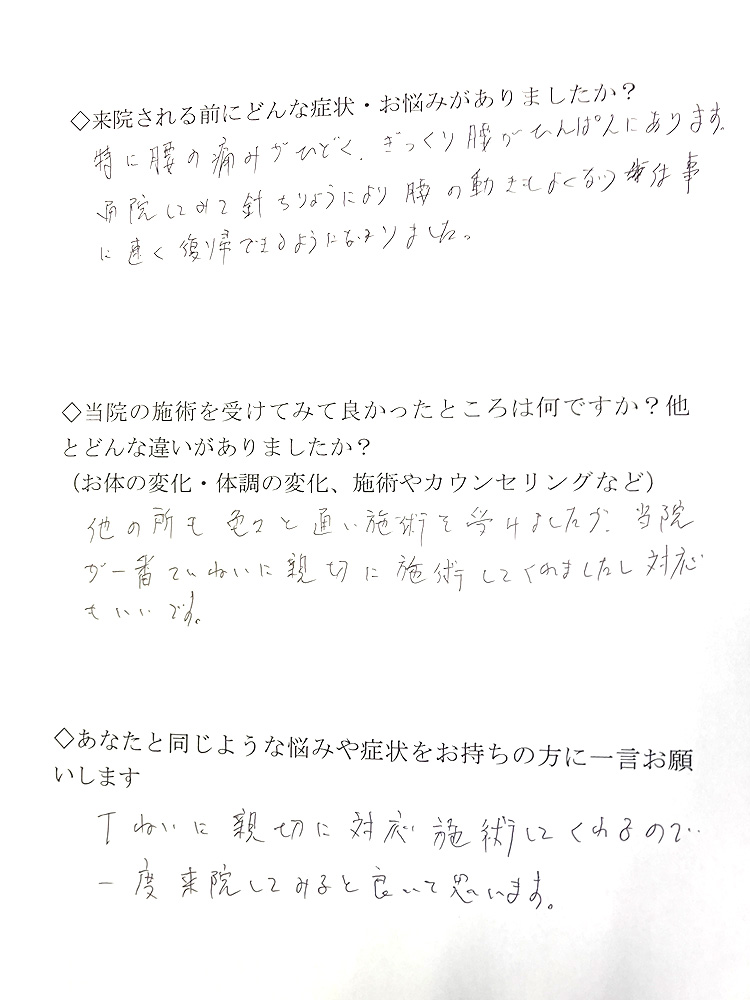 ◇来院される前にどんな症状・お悩みがありましたか？
特に腰の痛みがひどく、ぎっくり腰がひんぱんにあります。
通院してみて針ちりょうにより腰の動きもよくなり仕事
に速く復帰できるようになりました。
◇当院の施術を受けてみて良かったところは何ですか？他
とどんな違いがありましたか？
（お体の変化・体調の変化、施術やカウンセリングなど）
他の所も色々と通い施術を受けましたが、当院
が一番ていねいに親切に施術してくれましたし対応
もいいです。
◇あなたと同じような悩みや症状をお持ちの方に一言お願
いします
ていねいに親切に対応施術してくれるので
一度来院してみると良いて思います。